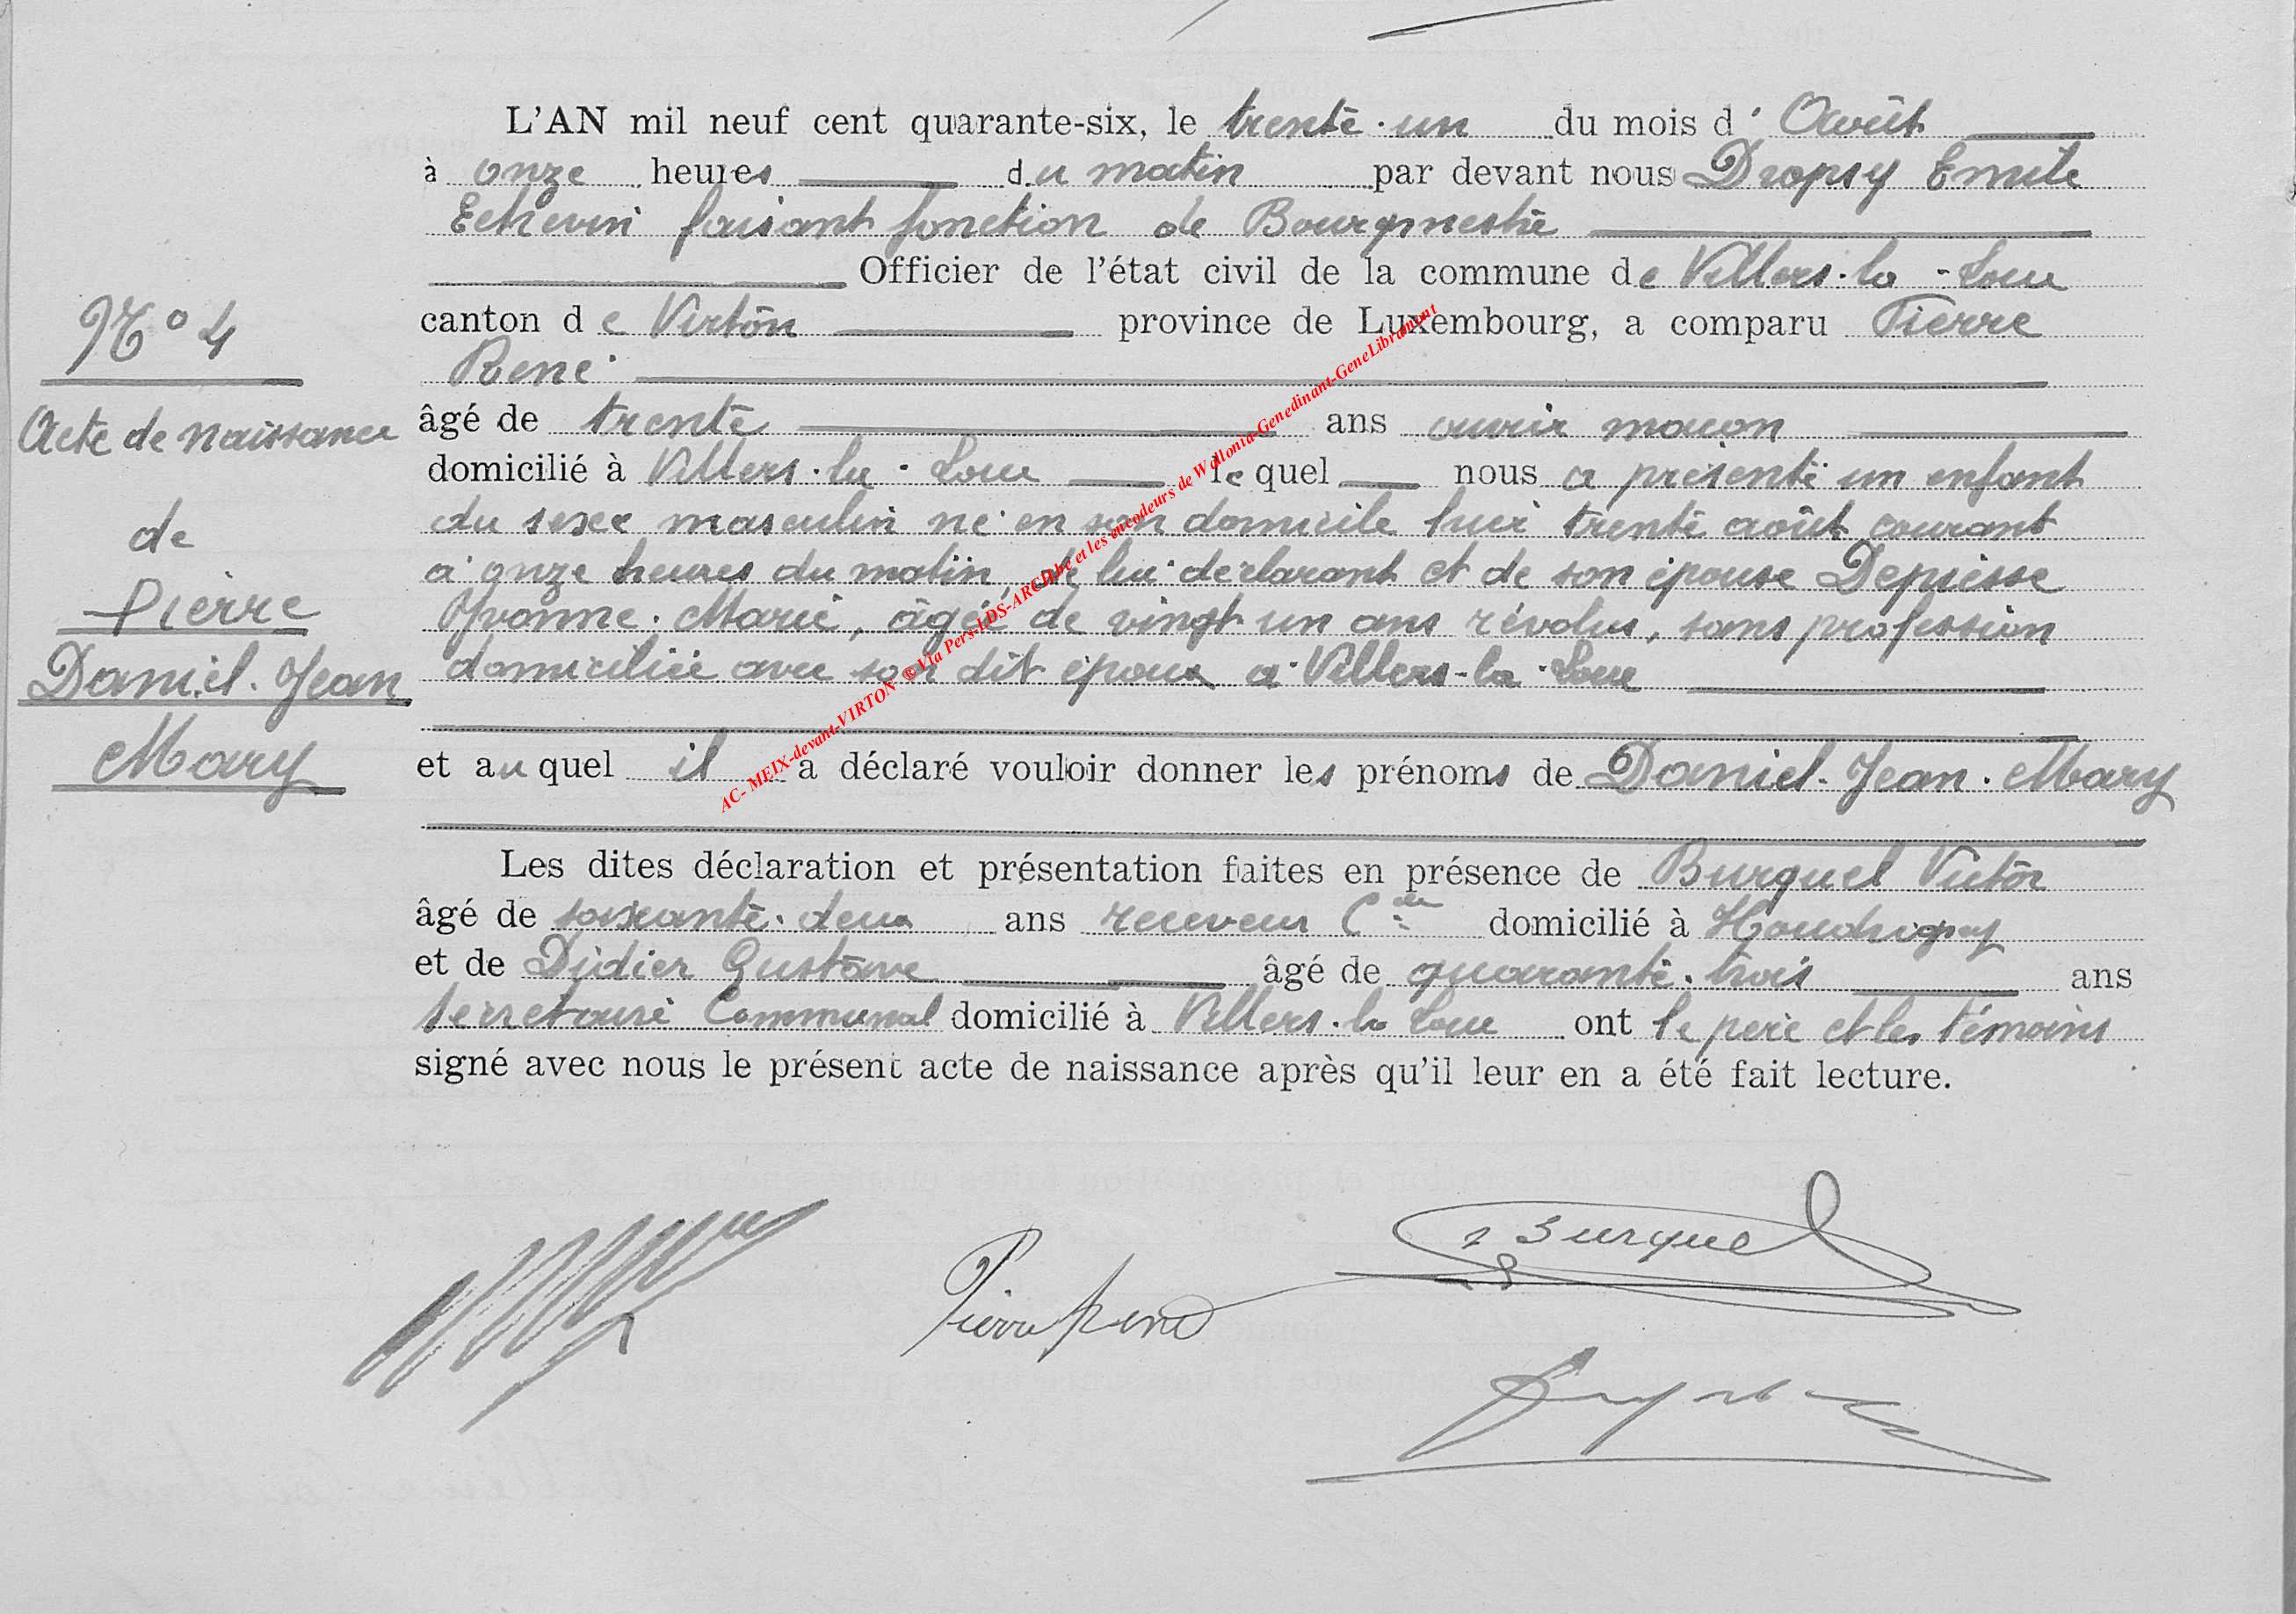 L'AN mil neuf cent quarante-six, le trente-un du mois d' Août
à onze heures du matin par devant nous Dropsy Emile
Echevin faisant fonction de Bourgmestre
Officier de l'état civil de la commune de Villers-la-Loue
canton de Virton province de Luxembourg, a comparu Pierre
René
âgé de trente ans ouvrier maçon
domicilié à Villers-la-Loue lequel nous a présenté un enfant
du sexe masculin né en son domicile hier trente août courant
à onze heures du matin, de lui déclarant et de son épouse Depiesse
Yvonne-Marie, âgée de vingt un ans révolus, sans profession
domiciliée avec son dit époux à Villers-la-Loue
et auquel il a déclaré vouloir donner les prénoms de Daniel-Jean-Mary
Les dites déclaration et présentation faites en présence de Burquel Victor
âgé de soixante-deux ans receveur Cal domicilié à Houdrigny
et de Didier Gustave âgé de quarante-trois ans
secrétaire Communal domicilié à Villers-la-Loue ont le père et les témoins
signé avec nous le présent acte de naissance après qu'il leur en a été fait lecture.
N° 4
Acte de naissance
de
Pierre
Daniel-Jean
Mary
AC- MEIX-devant-VIRTON © Via Pers-LDS-ARCH.be et les encodeurs de Wallonia-Genedinant-GeneLibramont
Pierre René
Burquel